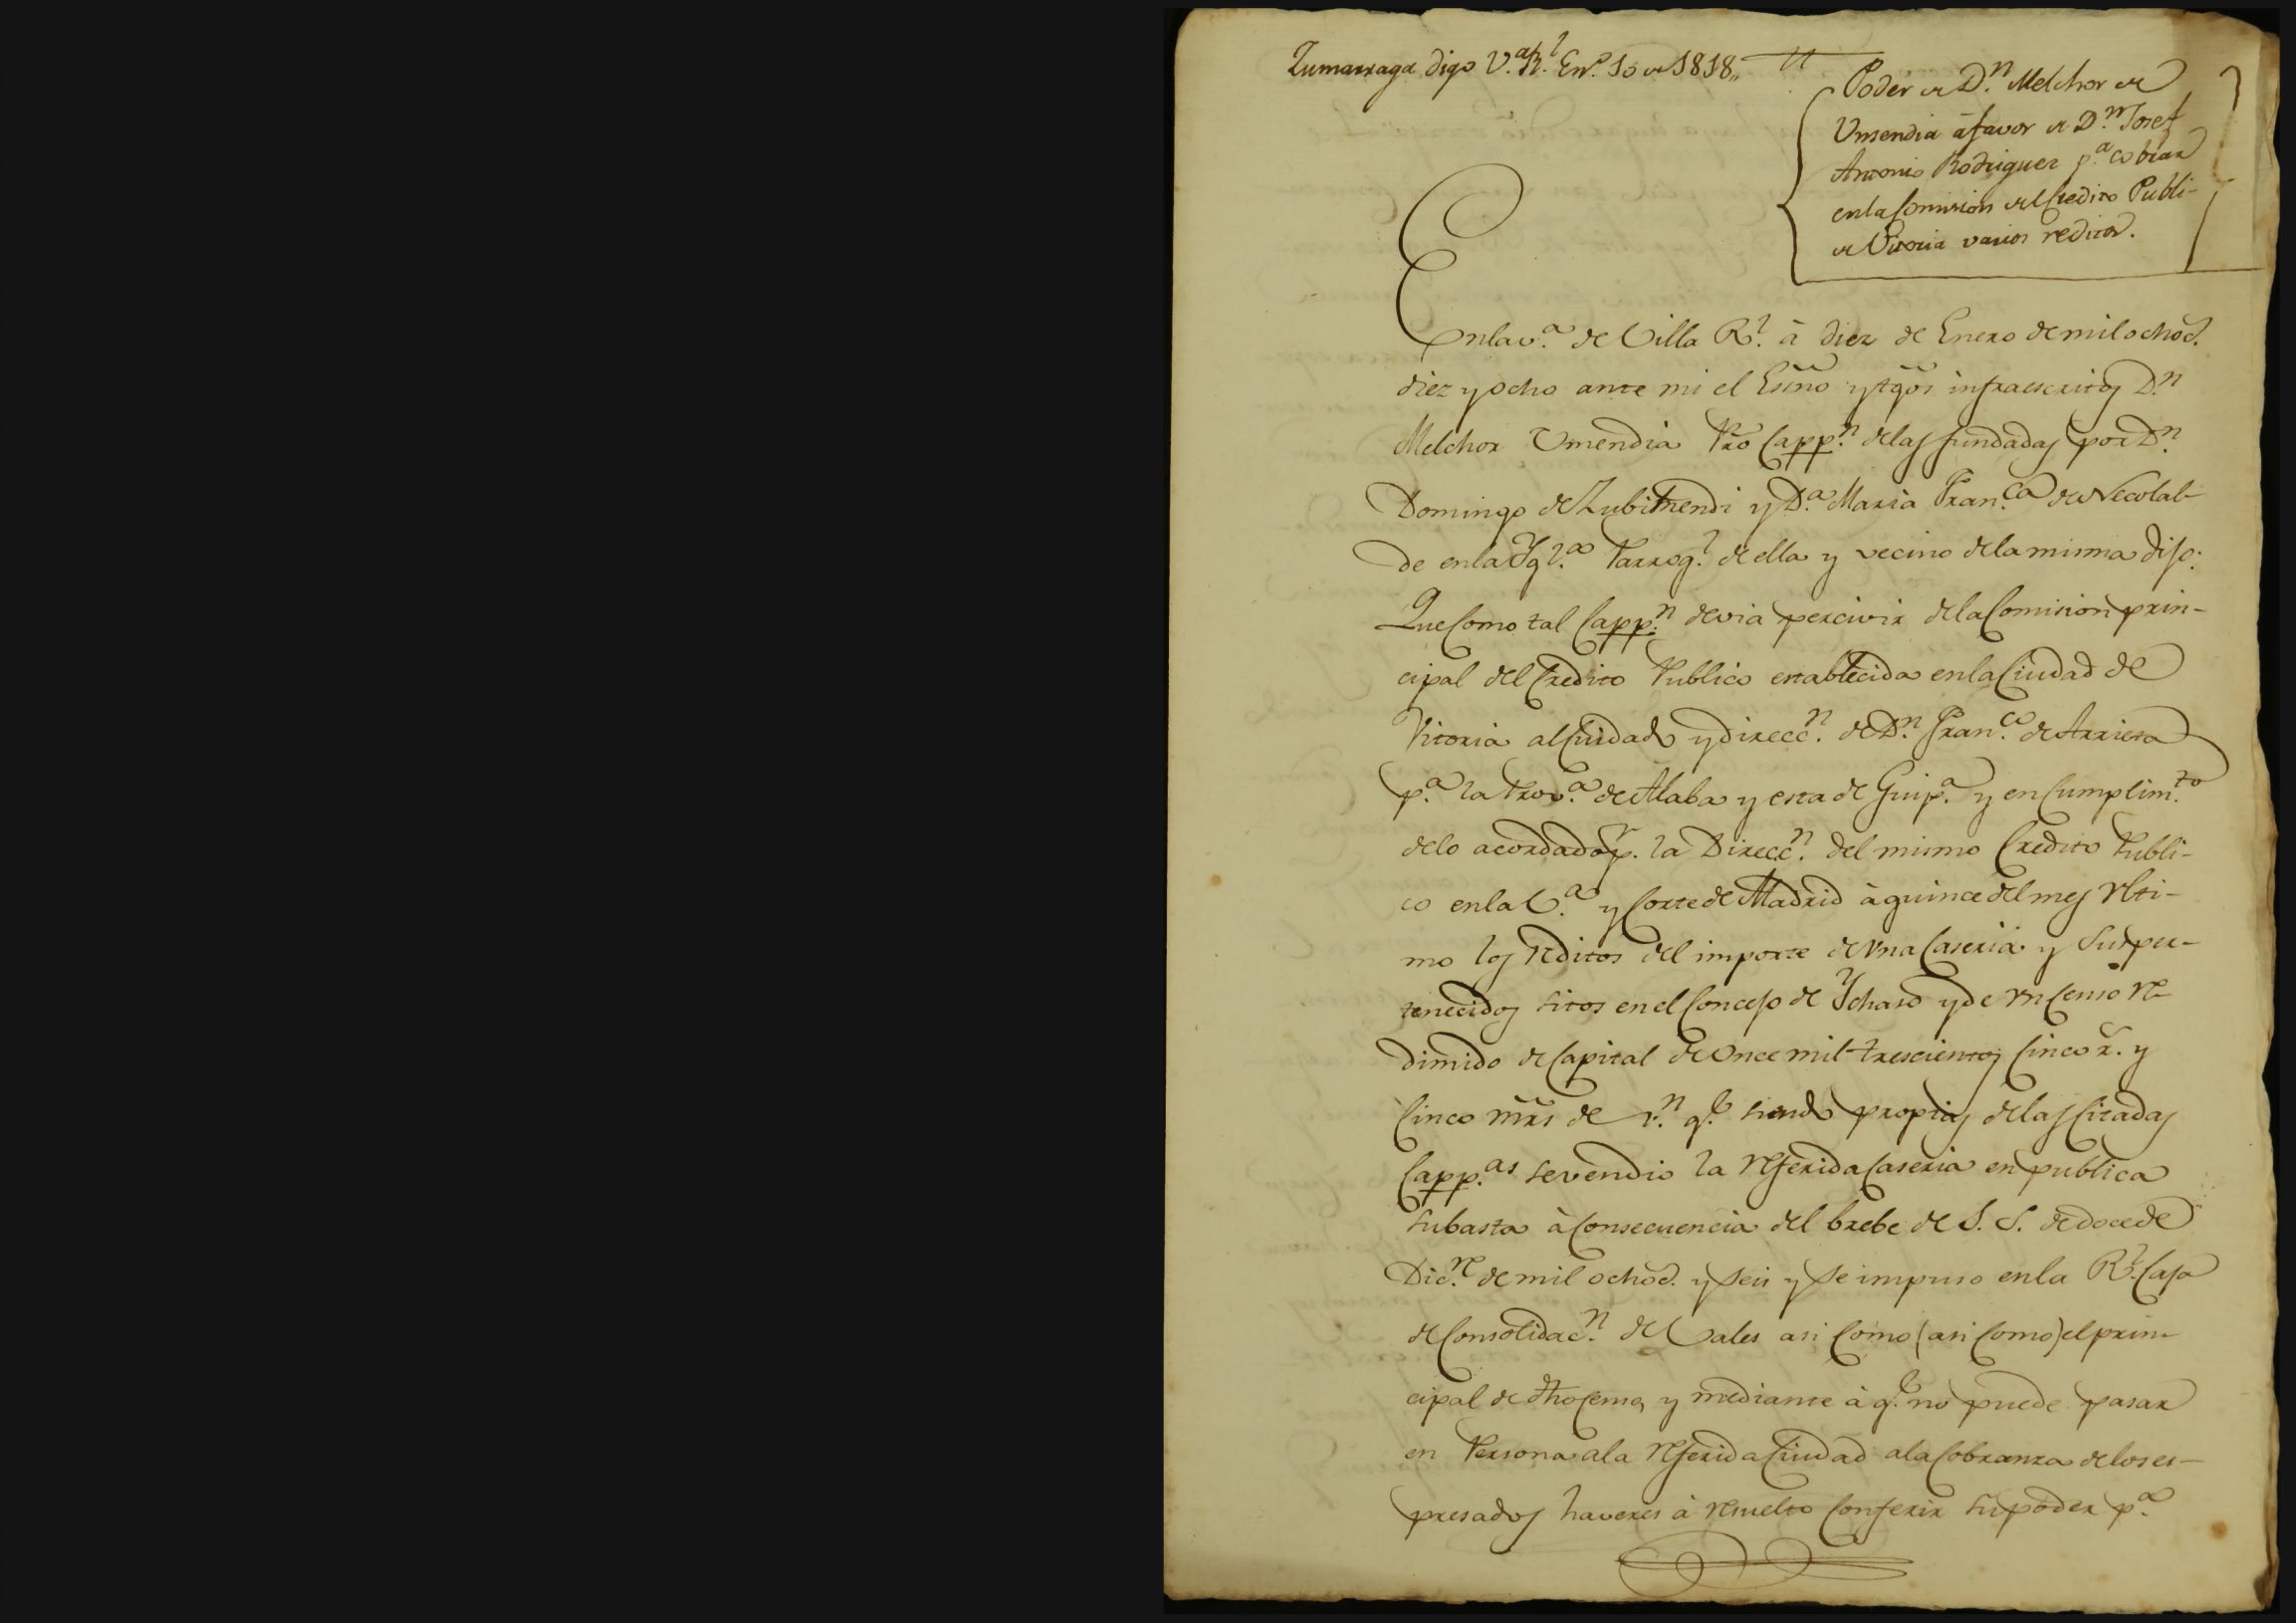 Zumarraga digo V.ª R.l En.º 10 de 1818,,
Poder de D.n Melchor de
Umendia à favor de D.n Josef
Antonio Rodriguez p.a cobrar
en la Comision del Credito Publi-
de Vitoria varios reditos.
En la v.a de Villa R.l à diez de Enero de mil ochoc.
diez y ocho ante mi el Esño y tgõs infraescritos D.n
Melchor Umendia Prõ Capp.n de las fundadas por D.n
Domingo de Zubimendi y D.a Maria Fran.ca de Necolal-
de en la Ygl.a Parroq.l de ella y vecino de la misma dijo:
Que como tal Capp.n devia percivir de la Comision prin-
cipal del Credito Publico establecida en la Ciudad de
Vitoria al Cuidado y direcc.n de D.n Fran.co de Arrieta
p.a la Prov.a de Alaba y esta de Guip.a y en cumplim.to
de lo acordado p.r la Direcc.n del mismo Credito Publi-
co en la V.a y Corte de Madrid à quince del mes Ulti-
mo los reditos del importe de una Caseria y sus per-
tenecidos sitos en el Concejo de Ychaso y de un Censo re-
dimido de Capital de Once mil trescientos Cinco r.s y
Cinco mrs de v.n q.e siendo propias de las Citadas
Capp.as se vendio la referida Caseria en publica
subasta à consecuencia del brebe de S. S. de doce de
Dic.re de mil ochoc. y seis y se impuso en la R.l Caja
de Consolidac.n de Vales asi como (asi como) el prin-
cipal de dho Censo, y mediante à q.e no puede pasar
en Persona a la referida Ciudad a la Cobranza de los es-
presados haveres à resuelto Conferir su poder p.a